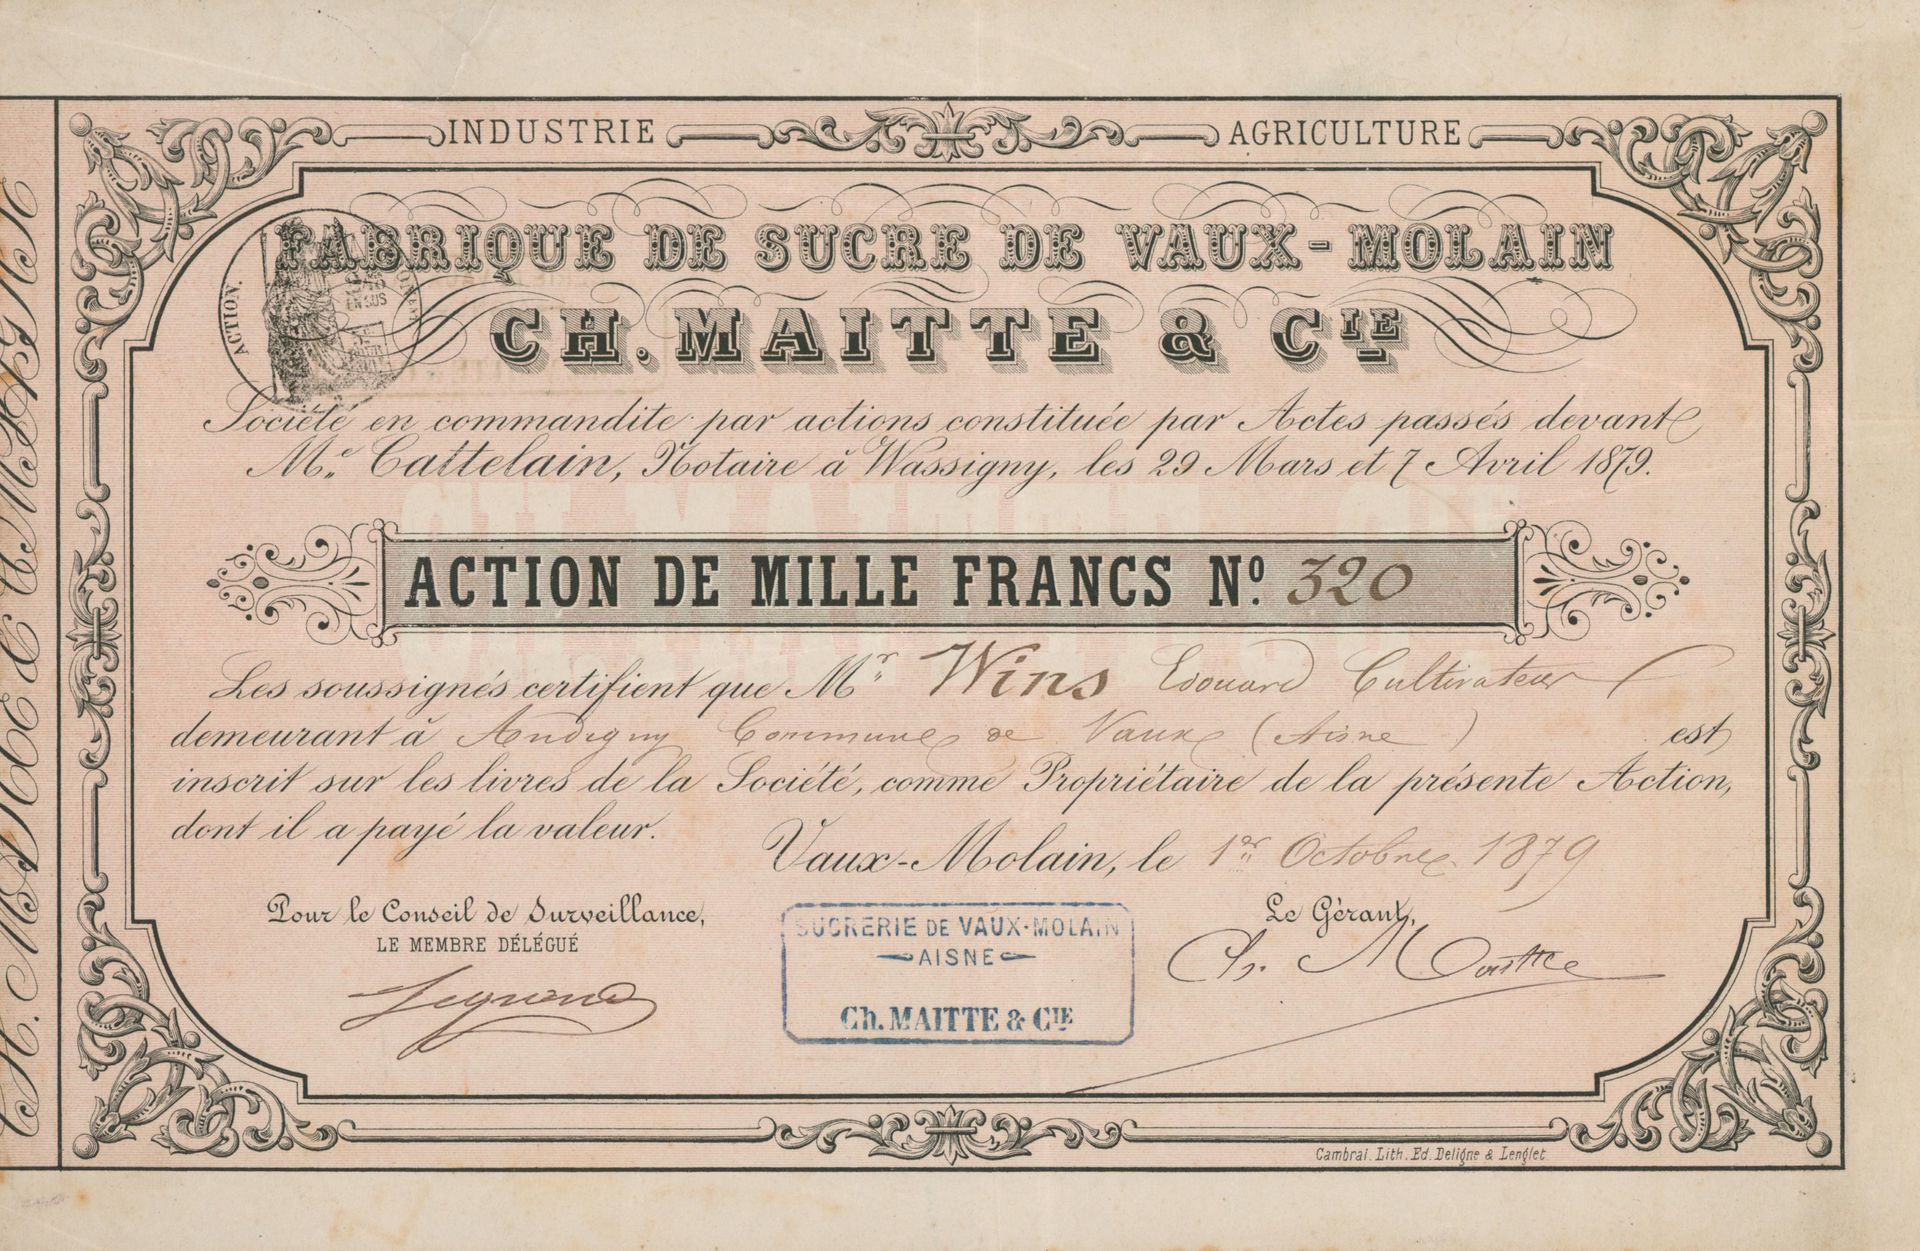 INDUSTRIE AGRICULTURE
FABRIQUE DE SUCRE DE VAUX-MOLAIN
ACTION.
EN SUS
CH. MAITTE & CIE
Société en commandite par actions constituée par Actes passés devant
Me Cattelain, Notaire à Wassigny, les 29 Mars et 7 Avril 1879.
ACTION DE MILLE FRANCS No. 320
Les soussignés certifient que Mr Wins Edouard Cultivateur
demeurant à Andigny Commune de Vaux (Aisne) est
inscrit sur les livres de la Société, comme Propriétaire de la présente Action,
dont il a payé la valeur.
Vaux-Molain, le 1er Octobre 1879
Pour le Conseil de Surveillance,
LE MEMBRE DÉLÉGUÉ
Legrand
SUCRERIE DE VAUX-MOLAIN
AISNE
Ch. MAITTE & CIE
Le Gérant,
Ch. Maitte
Cambrai. Lith. Ed. Deligne & Lenglet